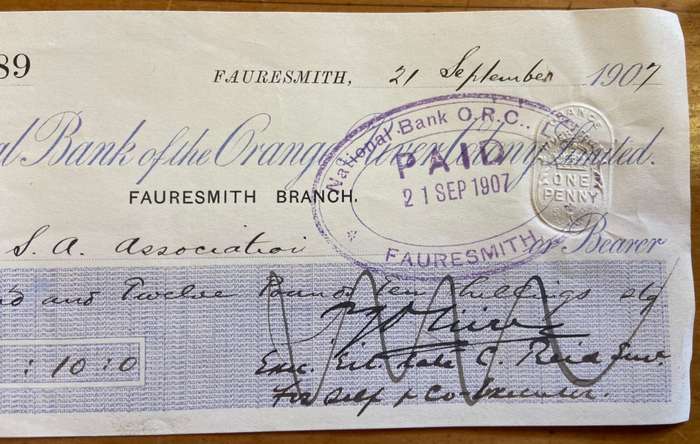 89
FAURESMITH, 21 September 1907
al Bank of the Orange River Colony Limited.
National Bank O.R.C.,
PAID
21 SEP 1907
FAURESMITH
ONE
PENNY
FAURESMITH BRANCH.
S. A. Association or Bearer
and Twelve Pounds Ten Shillings stg
: 10 : 0
Exec. Estate C. Reid
For self & Co-Executor.